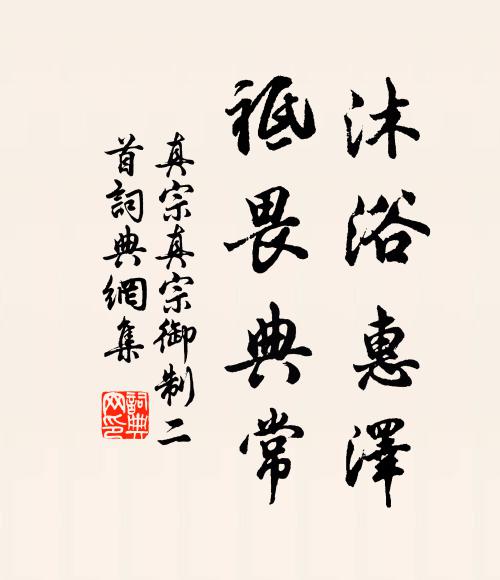 沐浴惠澤
祗畏典常
真宗真宗御制二
首詞典網集
詞典
网印